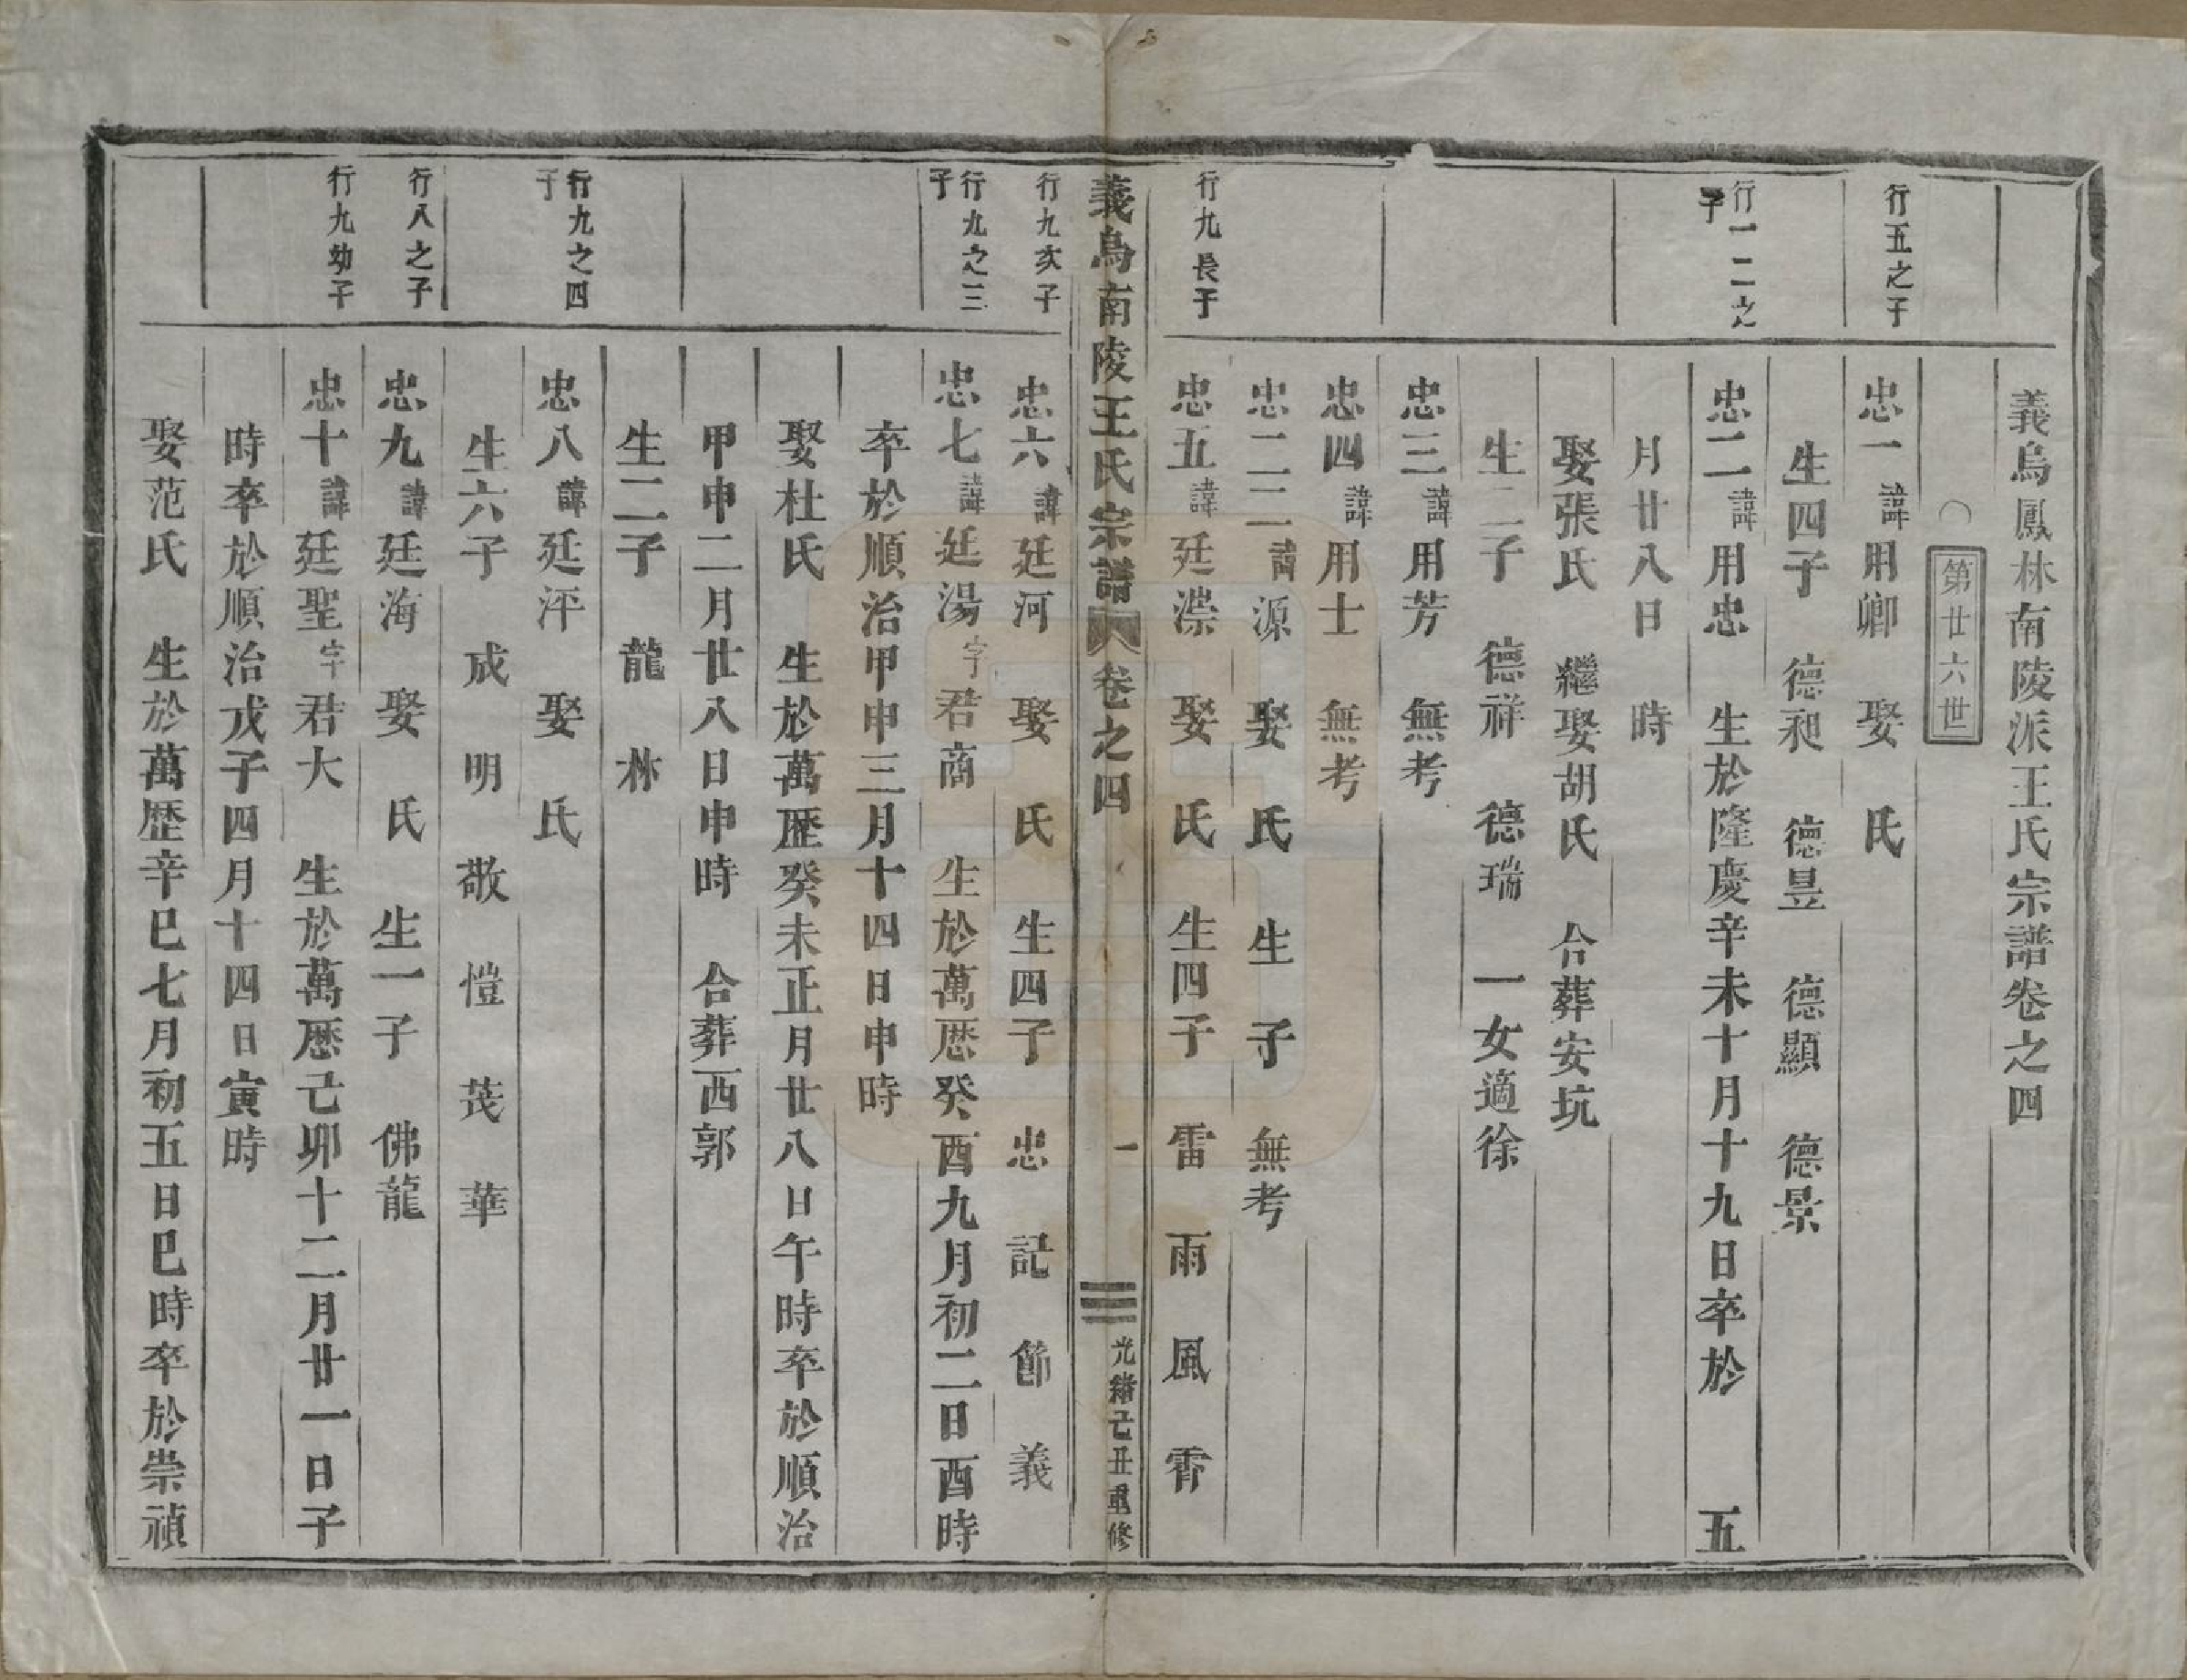 義烏鳳林南陵派王氏宗譜卷之四
第廿六世
行五之子
忠一諱用卿 娶 氏
生四子 德昶 德昱 德顯 德景
行一二之子
忠二諱用忠 生於隆慶辛未十月十九日卒於 五
月廿八日 時
娶張氏 繼娶胡氏 合葬安坑
生二子 德祥 德瑞 一女適徐
忠三諱用芳 無考
忠四諱用士 無考
忠二二諱源 娶 氏 生 子 無考
行九長子
忠五諱廷漴 娶 氏 生四子 雷 雨 風 霄
義烏南陵王氏宗譜 卷之四 一 光緒己丑重修
行九次子
忠六諱廷河 娶 氏 生四子 忠 記 節 義
行九之三子
忠七諱廷湯字君商 生於萬厯癸酉九月初二日酉時
卒於順治甲申三月十四日申時
娶杜氏 生於萬歷癸未正月廿八日午時卒於順治
甲申二月廿八日申時 合葬西郭
生二子 龍 林
行九之四子
忠八諱廷泙 娶 氏
生六子 成 明 敬 愷 茂 華
行八之子
忠九諱廷海 娶 氏 生一子 佛龍
行九幼子
忠十諱廷聖字君大 生於萬厯己卯十二月廿一日子
時卒於順治戊子四月十四日寅時
娶范氏 生於萬歷辛巳七月初五日巳時卒於崇禎